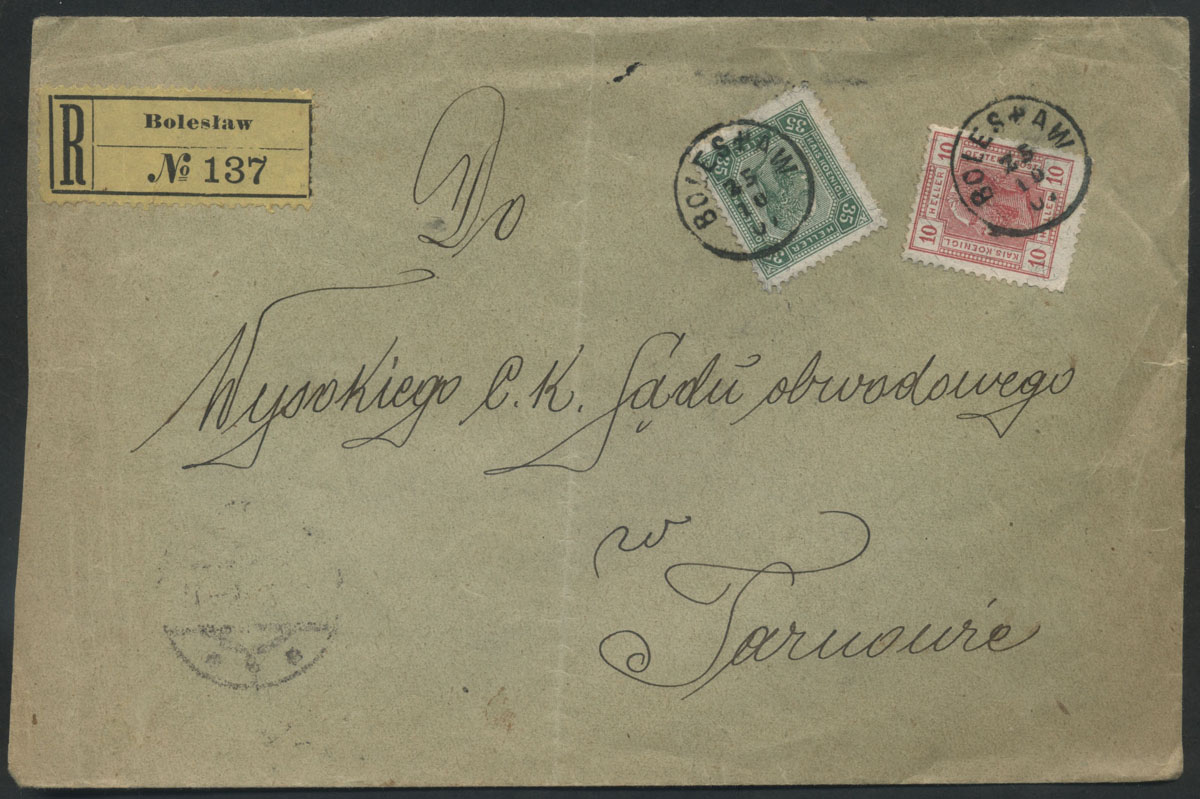 R
Bolesław
№ 137
BOLESŁAW
25
10
35
35
35
HELLER
BOLESŁAW
25
10
10
10
10
10
HELLER
KAIS. KOENIGL
Do
Wysokiego C. K. Sądu obwodowego
w
Tarnowie